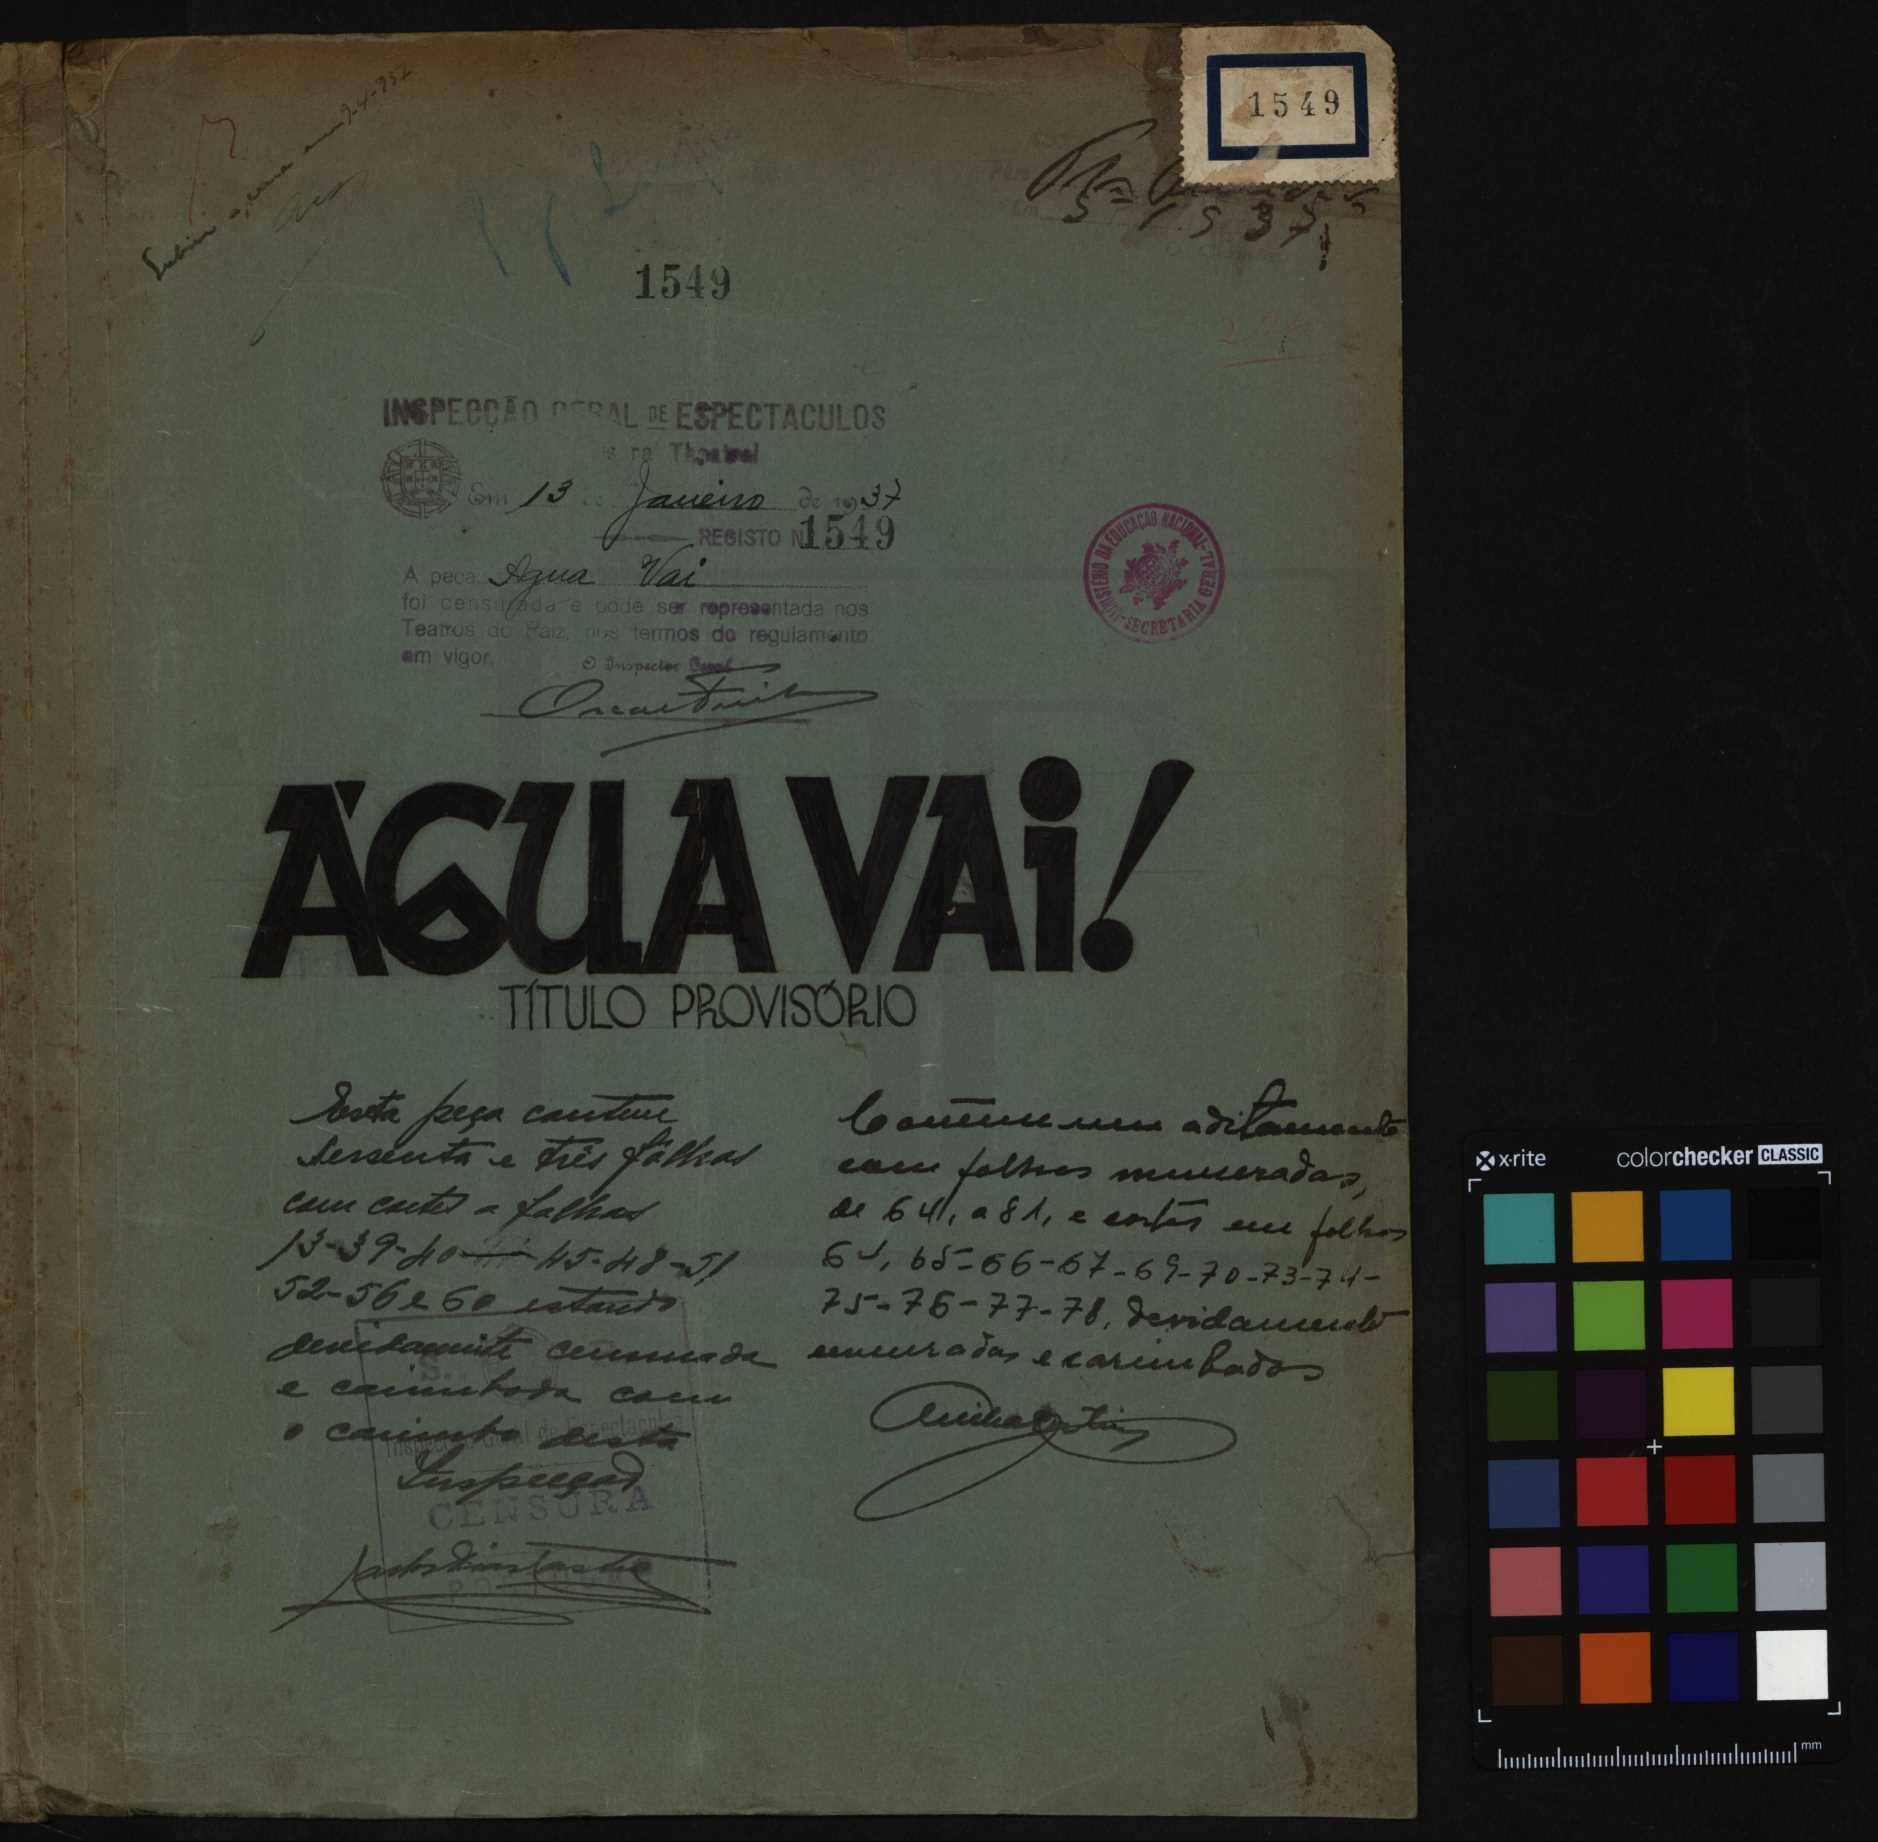 1549
1549
INSPECÇÃO GERAL DE ESPECTACULOS
Em 13 de Janeiro de 1937
REGISTO N 1549
A peca Agua Vai
foi censurada e pode ser representada nos
Teatros do Paiz, nos termos do regulamento
em vigor.
O Inspector Geral
MINISTÉRIO DA EDUCAÇÃO NACIONAL - SECRETARIA GERAL
ÁGUA VAi!
TÍTULO PROVISÓRIO
Esta peça contem
sessenta e três fôlhas
com cortes a fôlhas
13-39-40 45-48-51
52-56 e 60 estando
devidamente censurada
e carimbada com
o carimbo desta
Inspecção
Inspecção Geral de Espectaculos
CENSURA
Contem um aditamento
com folhas numeradas,
de 64, a 81, e cortes em folhas
64, 65-66-67-69-70-73-74-
75-76-77-78, devidamente
numeradas e carimbadas
x·rite colorchecker CLASSIC
mm